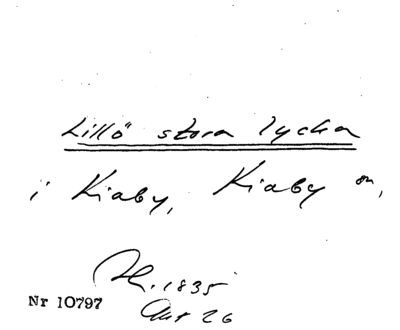 Lillö stora lycka
i Kiaby, Kiaby sn,
1835
Nr 10797
Akt 26